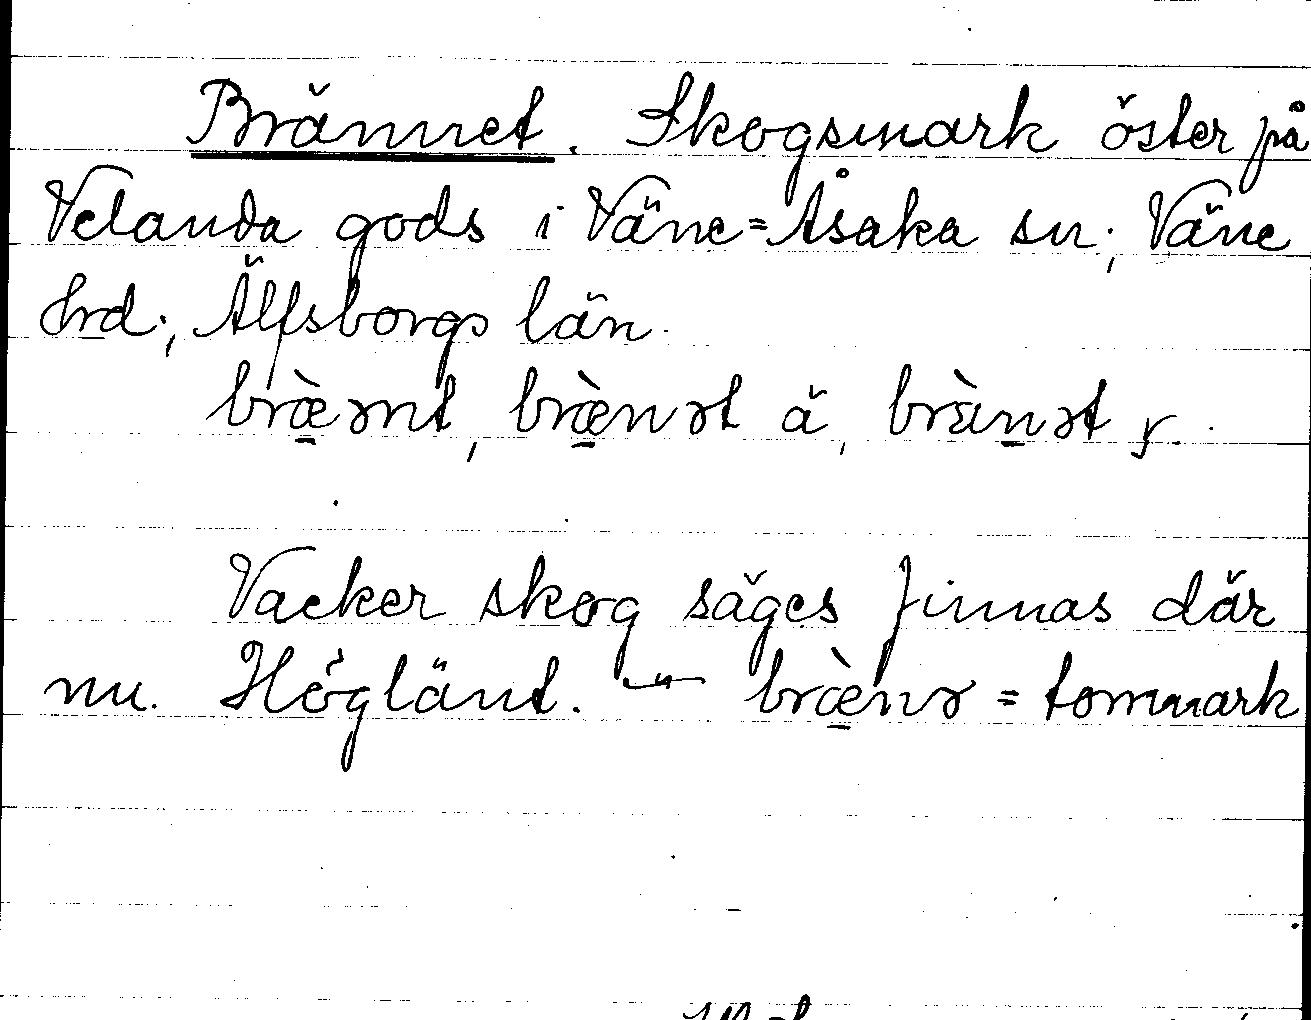 Brännet. Skogsmark öster på
Velanda gods i Väne=Åsaka sn., Väne
hrd., Älfsborgs län.
bræ̀ənt, bræ̀nət ä, bræ̀nət y.
Vacker skog säges finnas där
nu. Högländt. — bræ̀nə = tommark